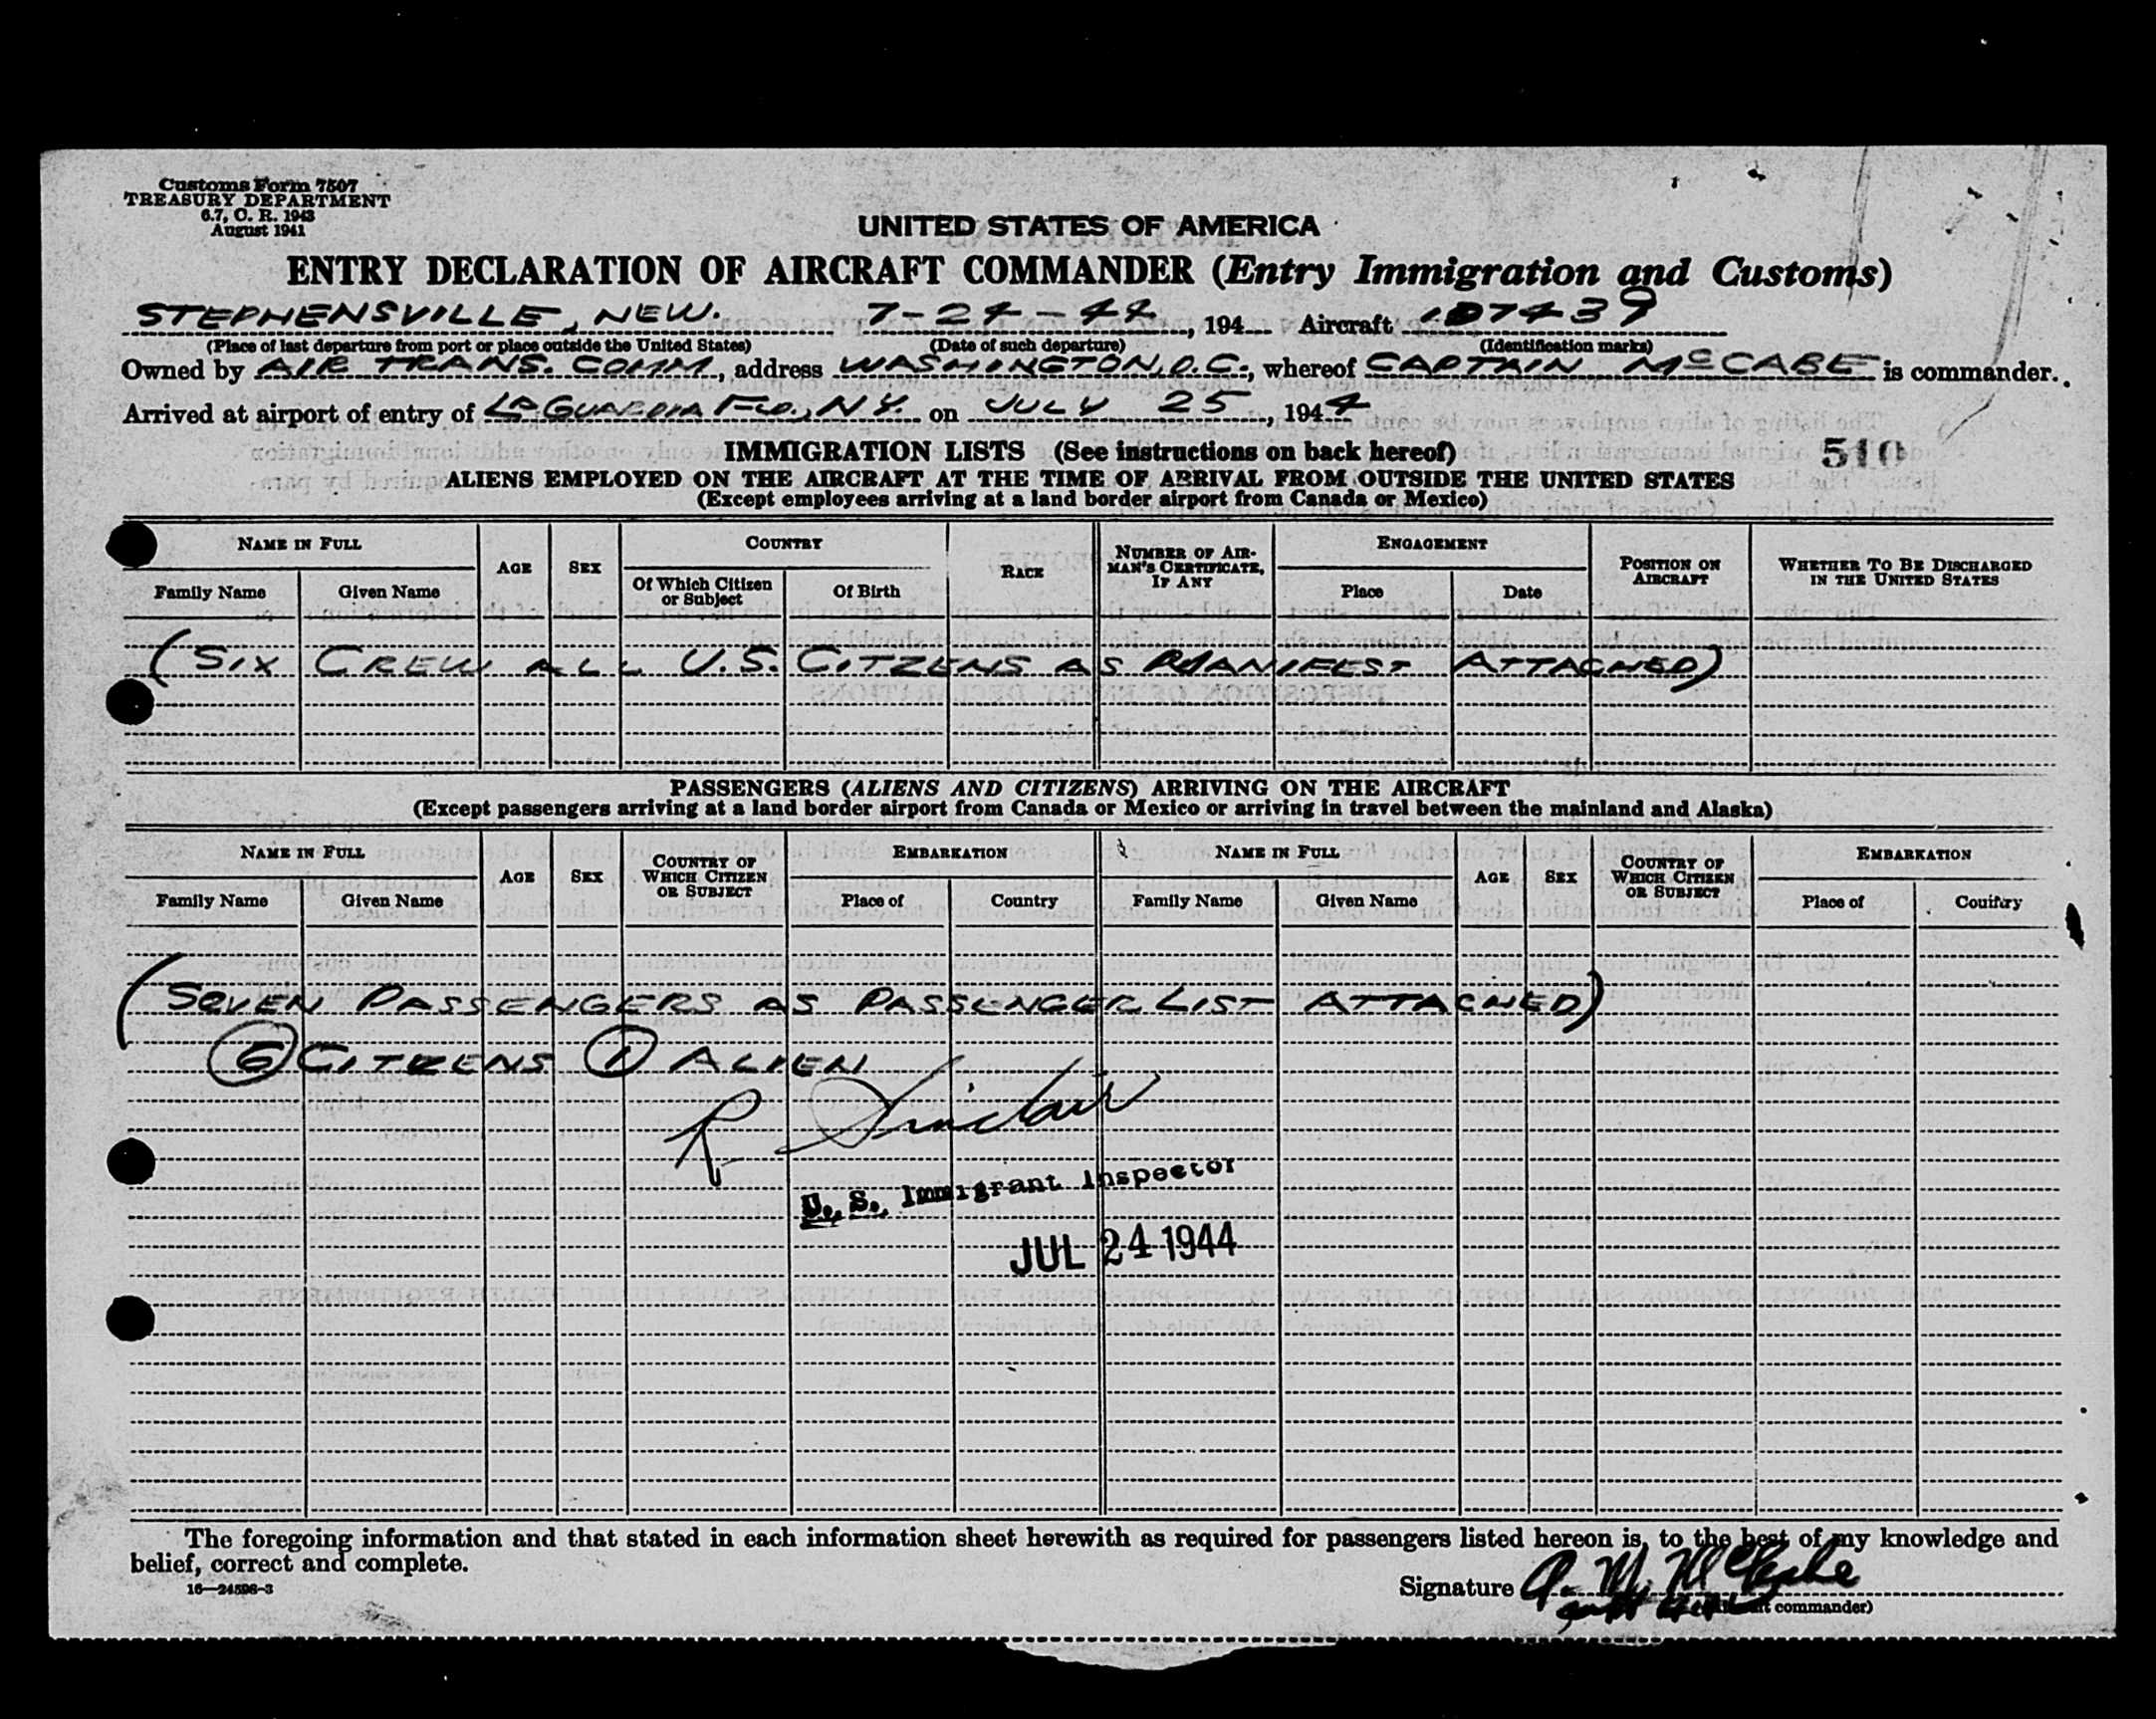 Customs Form 7507
TREASURY DEPARTMENT
6.7, C. R. 1943
August 1941
UNITED STATES OF AMERICA
ENTRY DECLARATION OF AIRCRAFT COMMANDER (Entry Immigration and Customs)
STEPHENSVILLE, NEW. 7-24-44, 194 Aircraft 107439
(Place of last departure from port or place outside the United States) (Date of such departure) (Identification marks)
Owned by AIR TRANS. COMM, address WASHINGTON, D.C., whereof CAPTAIN McCABE is commander.
Arrived at airport of entry of LA GUARDIA FLD., N.Y. on JULY 25, 1944
IMMIGRATION LISTS (See instructions on back hereof) 510
ALIENS EMPLOYED ON THE AIRCRAFT AT THE TIME OF ARRIVAL FROM OUTSIDE THE UNITED STATES
(Except employees arriving at a land border airport from Canada or Mexico)
NAME IN FULL AGE SEX COUNTRY RACE NUMBER OF AIRMAN'S CERTIFICATE, IF ANY ENGAGEMENT POSITION ON AIRCRAFT WHETHER TO BE DISCHARGED IN THE UNITED STATES
Family Name Given Name Of Which Citizen or Subject Of Birth Place Date
(SIX CREW ALL U.S. CITZENS AS MANIFEST ATTACHED)
PASSENGERS (ALIENS AND CITIZENS) ARRIVING ON THE AIRCRAFT
(Except passengers arriving at a land border airport from Canada or Mexico or arriving in travel between the mainland and Alaska)
NAME IN FULL AGE SEX COUNTRY OF WHICH CITIZEN OR SUBJECT EMBARKATION NAME IN FULL AGE SEX COUNTRY OF WHICH CITIZEN OR SUBJECT EMBARKATION
Family Name Given Name Place of Country Family Name Given Name Place of Country
(SEVEN PASSENGERS AS PASSENGER LIST ATTACHED)
6 CITIZENS 1 ALIEN
R Sinclair
U. S. Immigrant Inspector
JUL 24 1944
The foregoing information and that stated in each information sheet herewith as required for passengers listed hereon is, to the best of my knowledge and
belief, correct and complete.
16—24598-3
Signature A. M. McCabe
commander)